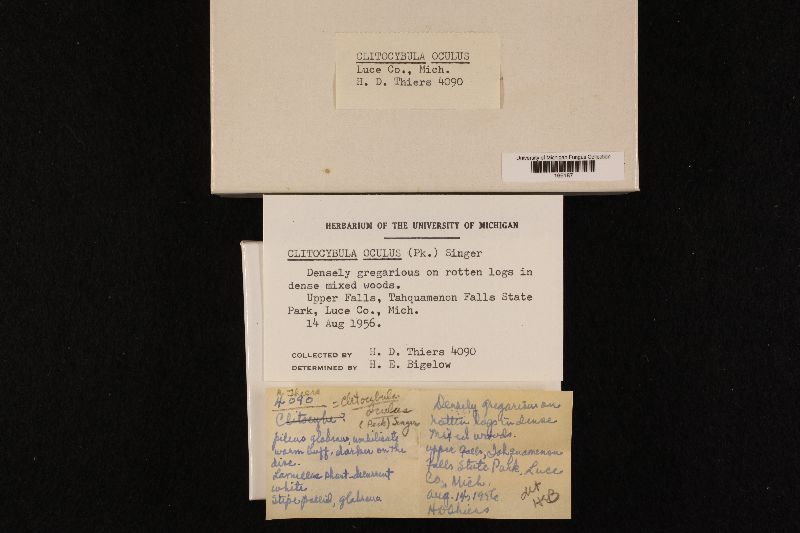 CLITOCYBULA OCULUS
Luce Co., Mich.
H. D. Thiers 4090
University of Michigan Fungus Collection
HERBARIUM OF THE UNIVERSITY OF MICHIGAN
CLITOCYBULA OCULUS (Pk.) Singer
Densely gregarious on rotten logs in
dense mixed woods.
Upper Falls, Tahquamenon Falls State
Park, Luce Co., Mich.
14 Aug 1956.
COLLECTED BY H. D. Thiers 4090
DETERMINED BY H. E. Bigelow
Thiers
4090 = Clitocybula
oculus
(Peck) Singer
Clitocybe?
pileus glabrous, umbilicate
warm buff, darker on the
disc.
Lamellae short decurrent
white
Stipe pallid, glabrous
Densely gregarious on
rotten logs in dense
mixed woods.
upper falls, Tahquamenon
falls State Park, Luce
Co., Mich.
Aug. 14, 1956
HDThiers
det
HEB